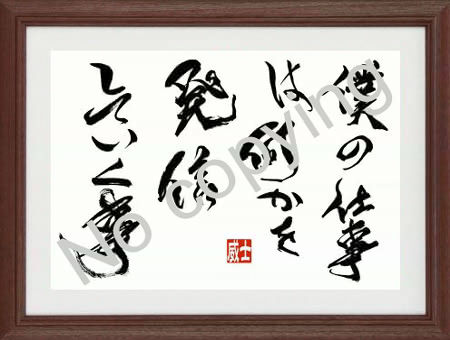 僕の仕事
は何かを
発信
していく事
威士
No copying